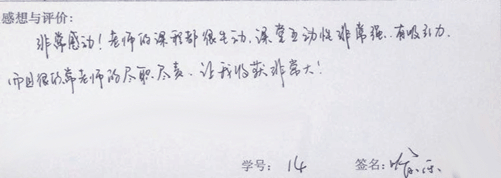 感想与评价:
非常感动!老师的课程都很生动,课堂互动性非常强、有吸引力,
而且很欣赏老师的尽职尽责、让我收获非常大!
学号: 14 签名: